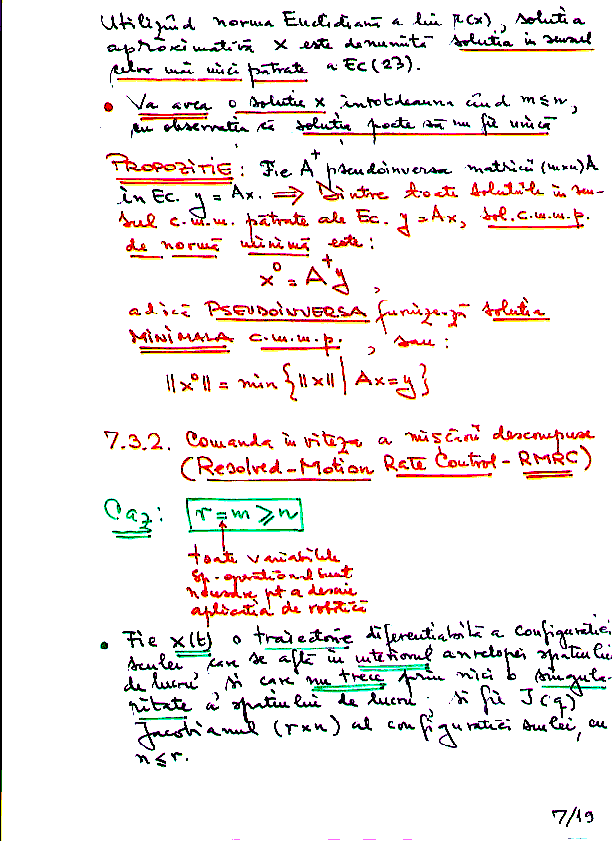 Utilizînd norma Euclidiană a lui r(x), soluția
aproximativă x este denumită soluția în sensul
celor mai mici pătrate a Ec(23).
• Va avea o soluție x întotdeauna cînd m ≤ n,
cu observația că soluția poate să nu fie unică
PROPOZIȚIE: Fie A⁺ pseudoinversa matricii (m×n) A
în Ec. y = Ax. ⟹ Dintre toate soluțiile în sen-
sul c.m.m. pătrate ale Ec. y = Ax, sol. c.m.m.p.
de normă minimă este:
x⁰ = A⁺y,
adică PSEUDOINVERSA furnizează soluția
MINIMALĂ c.m.m.p., sau:
||x⁰|| = min {||x|| | Ax=y}
7.3.2. Comanda în viteza a mișcării descompuse
(Resolved-Motion Rate Control - RMRC)
Caz: r = m ≥ n
toate variabilele
sp. operațional sunt
necesare pt a descrie
aplicația de robotică
• Fie x(t) o traiectorie diferențiabilă a configurației
sculei care se află în interiorul anvelopei spațiului
de lucru și care nu trece prin nici o singula-
ritate a spațiului de lucru; și fie J(q)
Jacobianul (r×n) al configurației sculei, cu
n ≤ r.
7/19